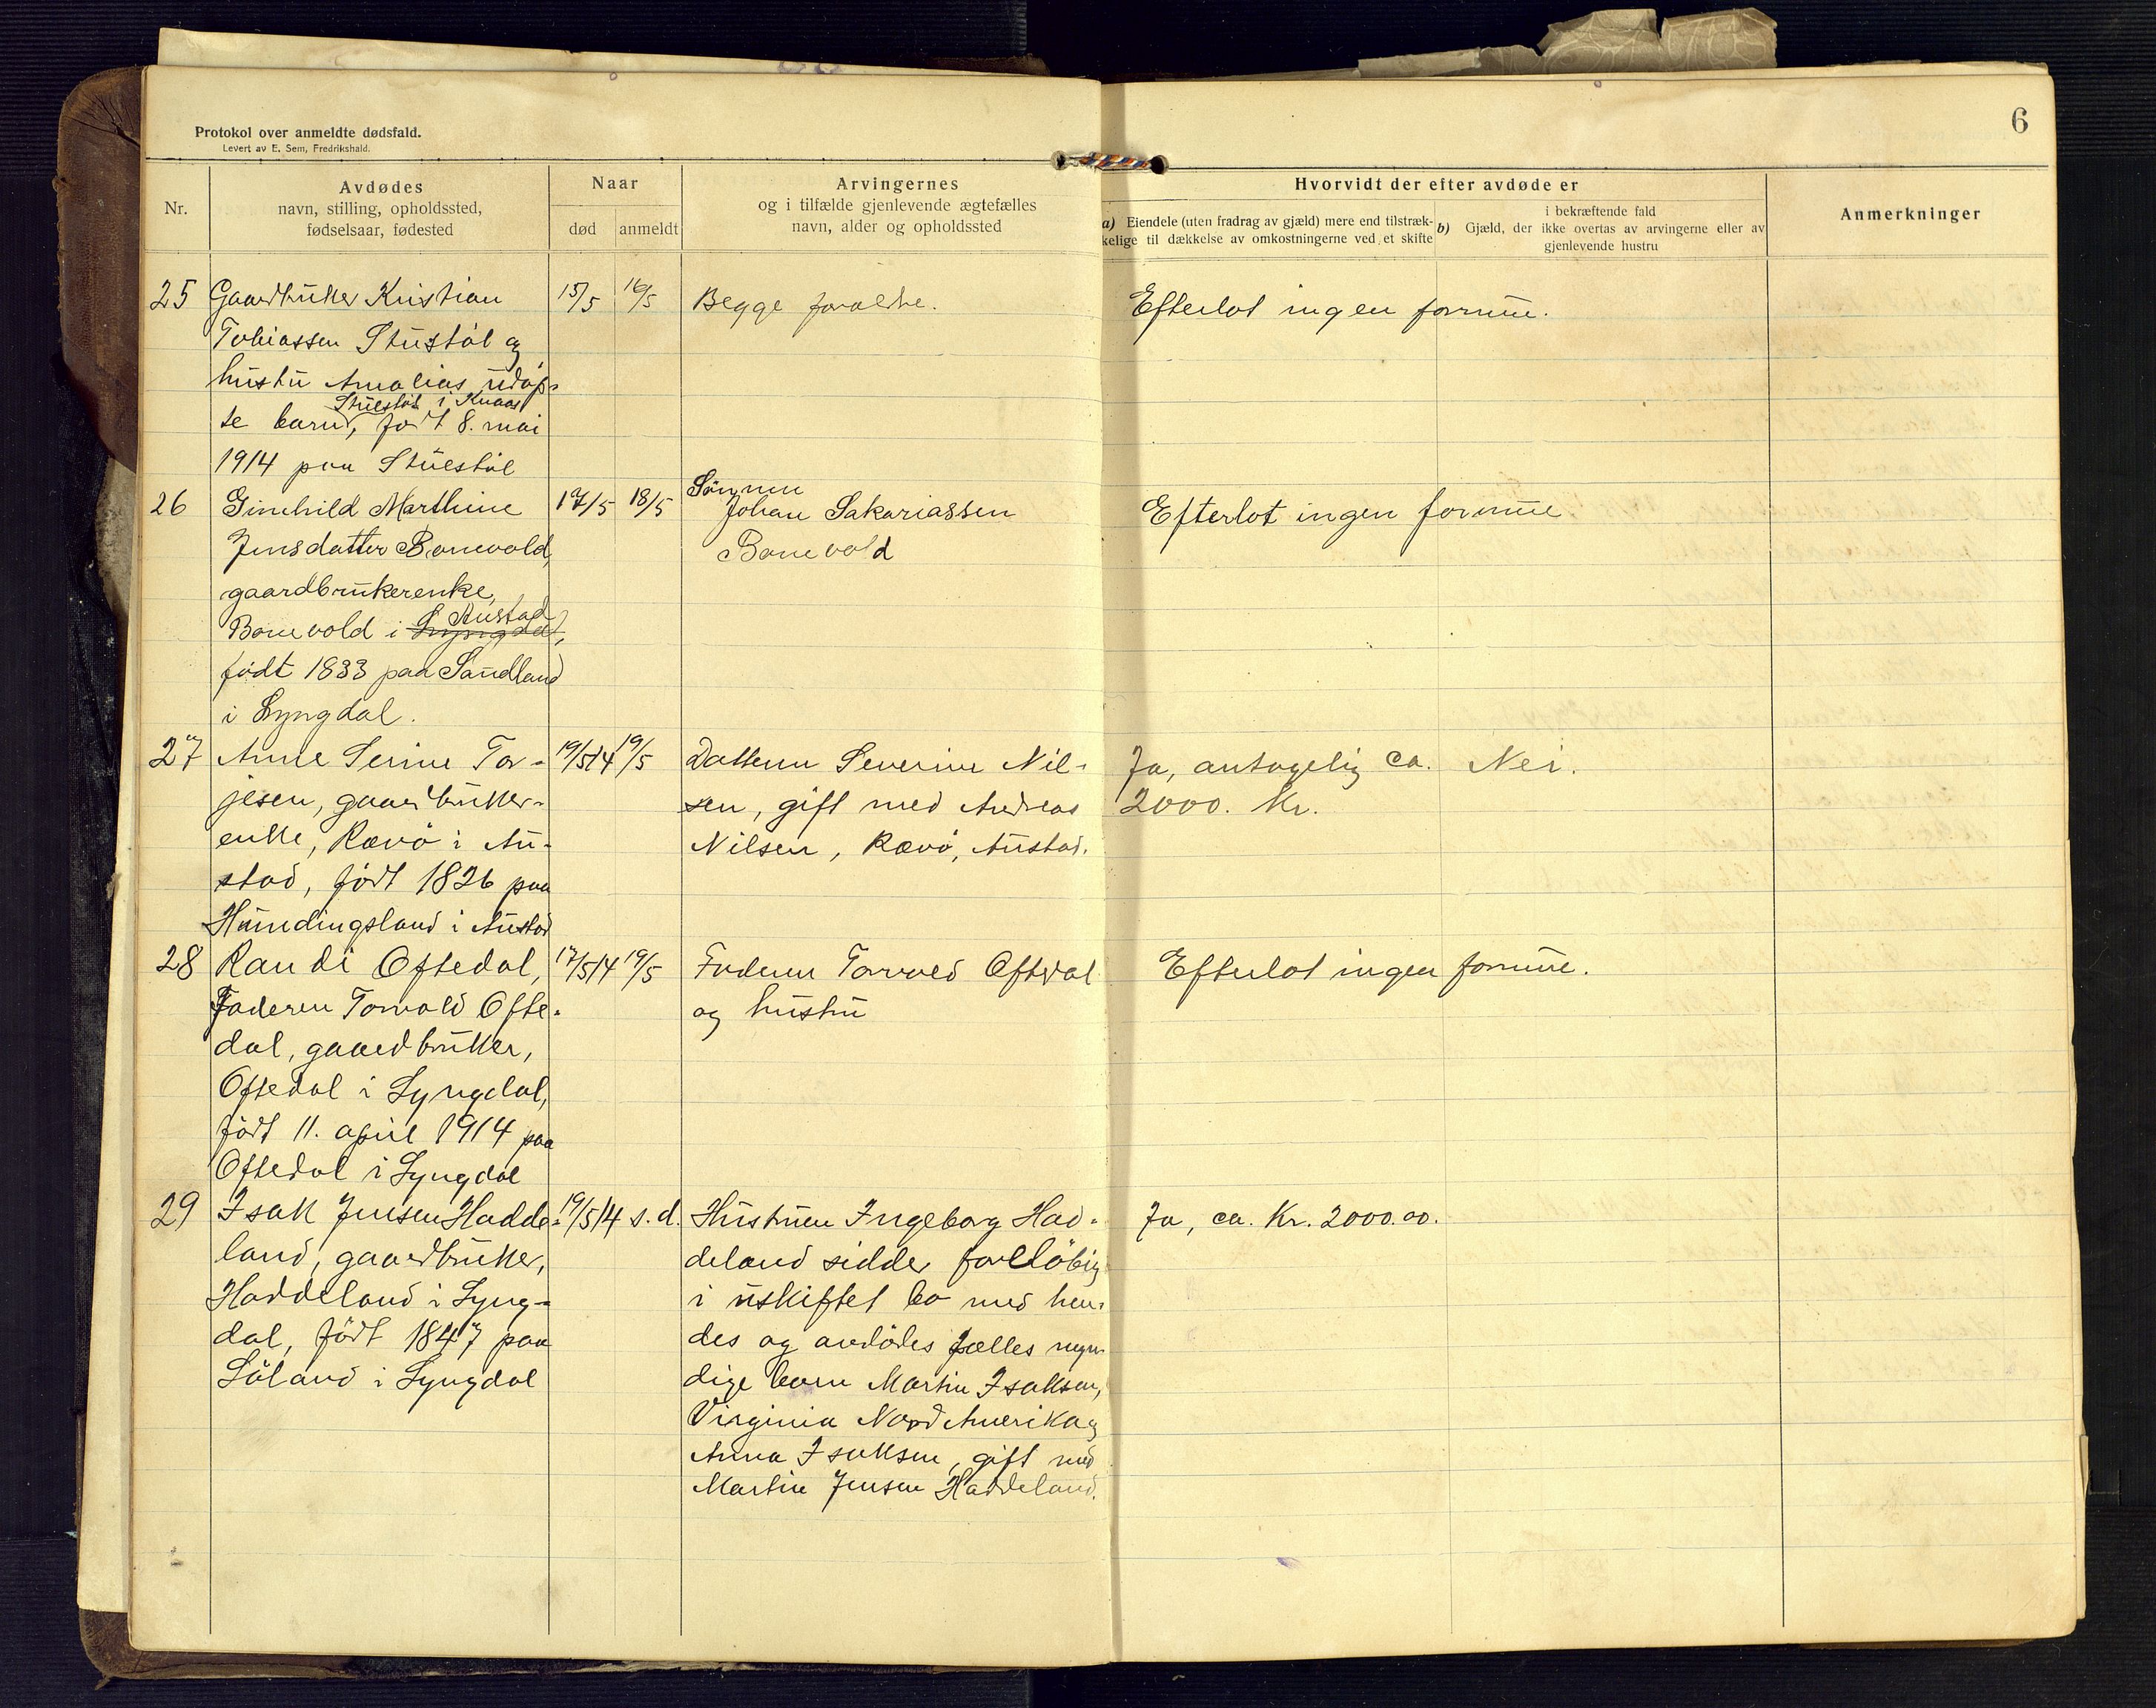 6
Protokol over anmeldte dødsfald.
Levert av E. Sem, Fredrikshald.
Nr.
Avdødes
navn, stilling, opholdssted,
fødselsaar, fødested
Naar
død
anmeldt
Arvingernes
og i tilfælde gjenlevende ægtefælles
navn, alder og opholdssted
Hvorvidt der efter avdøde er
a) Eiendele (uten fradrag av gjæld) mere end tilstræk-
kelige til dækkelse av omkostningerne ved et skifte
i bekræftende fald
b) Gjæld, der ikke overtas av arvingerne eller av
gjenlevende hustru
Anmerkninger
25
Gaardbruker Kristian
Tobiassen Stuestøl og
hustru Amalias udøp-
Stuestøl i Kvaas
te barn, født 8. mai
1914 paa Stuestøl
15/5
16/5
Begge forældre.
Efterlot ingen formue.
26
Gunhild Marthine
Jensdatter Bonevold,
gaardbrukerenke,
Austad
Bonevold i Lyngdal,
født 1833 paa Sandland
i Lyngdal.
17/5
18/5
Sønnen
Johan Sakariassen
Bonevold
Efterlot ingen formue
27
Anne Serine Tor-
jesen, gaardbruker-
enke, Rævø i Au-
stad, født 1826 paa
Humdingsland i Austad
19/5 14
19/5
Datteren Severine Nil-
sen, gift med Andreas
Nilsen, Rævø, Austad.
Ja, antagelig ca.
2000. Kr.
Nei.
28
Randi Oftedal,
Faderen Torvald Ofte-
dal, gaardbruker,
Oftedal i Lyngdal,
født 11. april 1914 paa
Oftedal i Lyngdal
17/5 14
19/5
Faderen Torvald Oftedal
og hustru
Efterlot ingen formue.
29
Isak Jensen Hadde-
land, gaardbruker,
Haddeland i Lyng-
dal, født 1847 paa
Løland i Lyngdal
19/5 14
s. d.
Hustruen Ingeborg Had-
deland sidder foreløbig
i uskiftet bo med hen-
des og avdødes fælles myn-
dige barn Martin Isaksen,
Virginia Nord Amerika og
Anna Isaksen, gift med
Martin Jensen Haddeland.
Ja, ca. Kr. 2000.00.